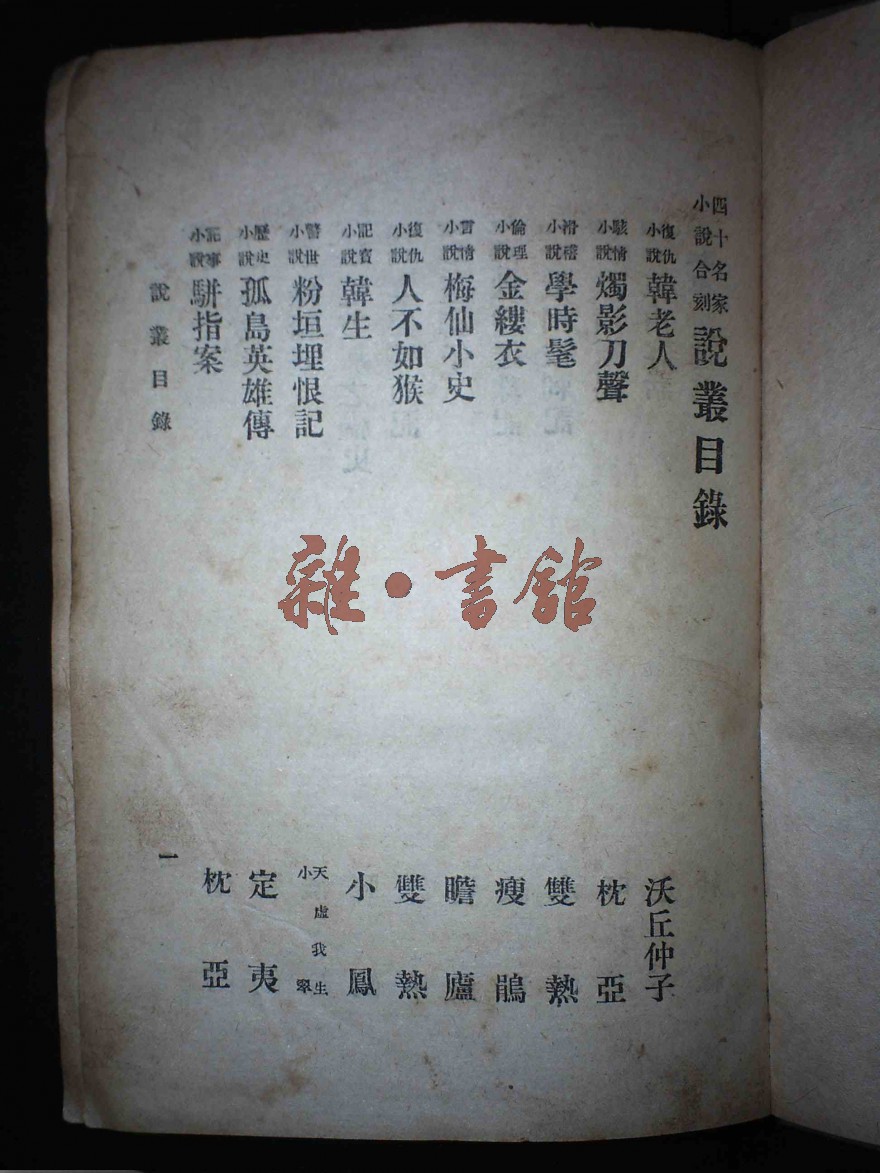 四十名家小說合刻 說叢目錄
復仇小說 韓老人 沃丘仲子
駭情小說 燭影刀聲 枕亞
滑稽小說 學時髦 雙熱
倫理小說 金縷衣 瘦鵑
言情小說 梅仙小史 瞻廬
復仇小說 人不如猴 雙熱
記實小說 韓生 小鳳
警世小說 粉垣埋恨記 天虛我生 小翠
歷史小說 孤島英雄傳 定夷
記事小說 駢指案 枕亞
說叢目錄 一
雜·書館